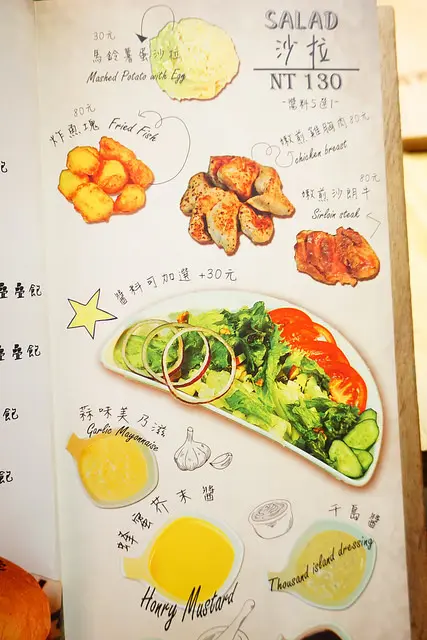 SALAD
沙拉
NT 130
-醬料5選1-
30元
馬鈴薯蛋沙拉
Mashed Potato with Egg
80元
炸魚塊 Fried Fish
嫩煎雞胸肉 80元
chicken breast
80元
嫩煎沙朗牛
Sirloin steak
醬料可加選 +30元
蒜味美乃滋
Garlic Mayonnaise
蜂蜜芥末醬
Honry Mustard
千島醬
Thousand island dressing